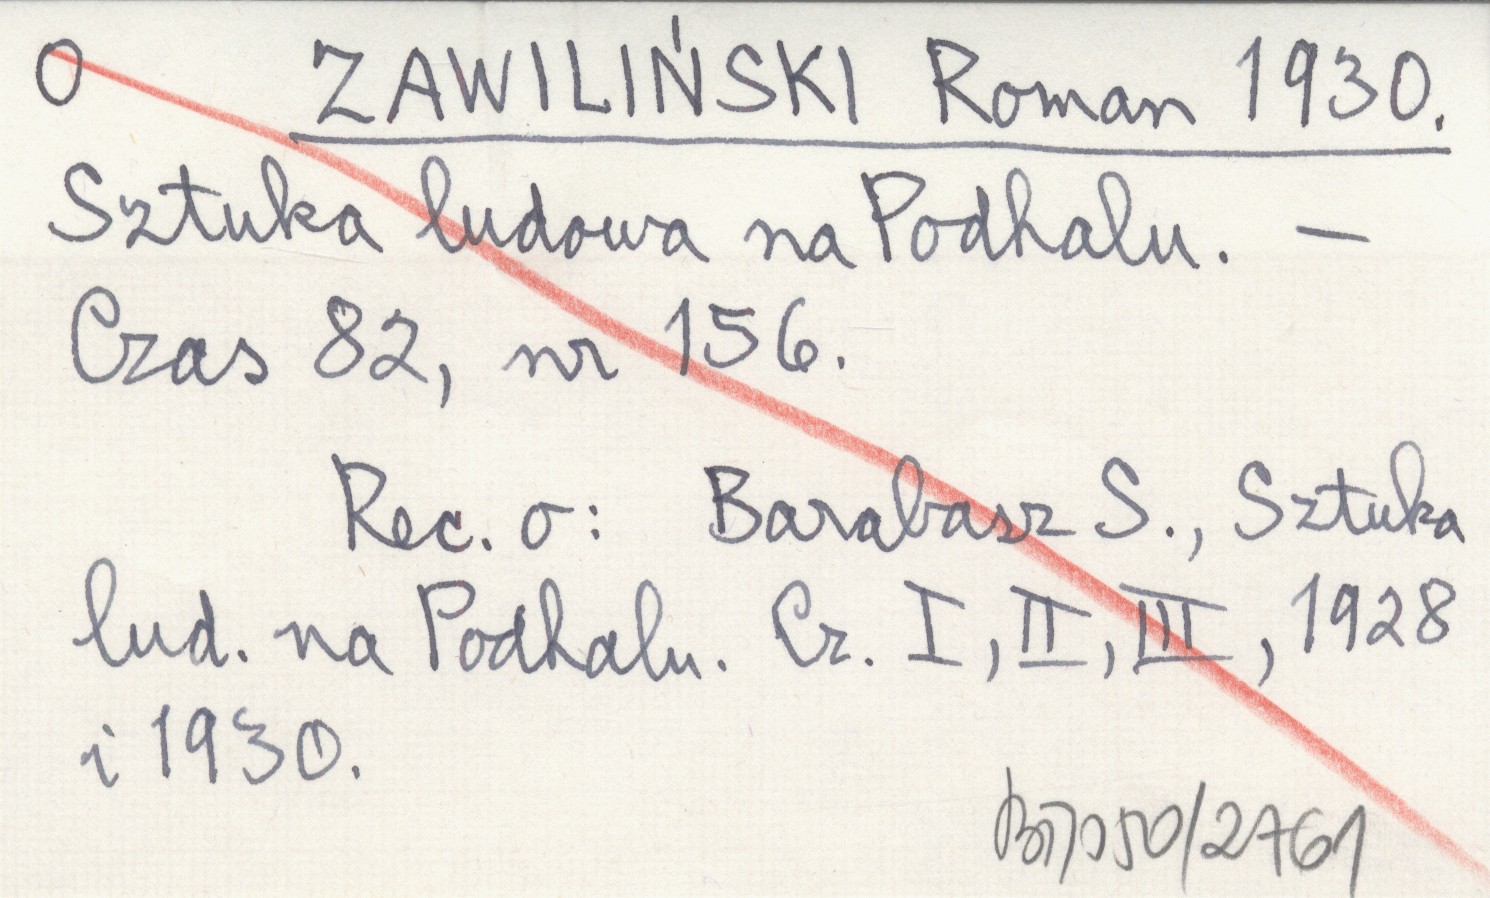 O ZAWILIŃSKI Roman 1930.
Sztuka ludowa na Podhalu. —
Czas 82, nr 156.
Rec. o: Barabasz S., Sztuka
lud. na Podhalu. Cz. I, II, III, 1928
i 1930.